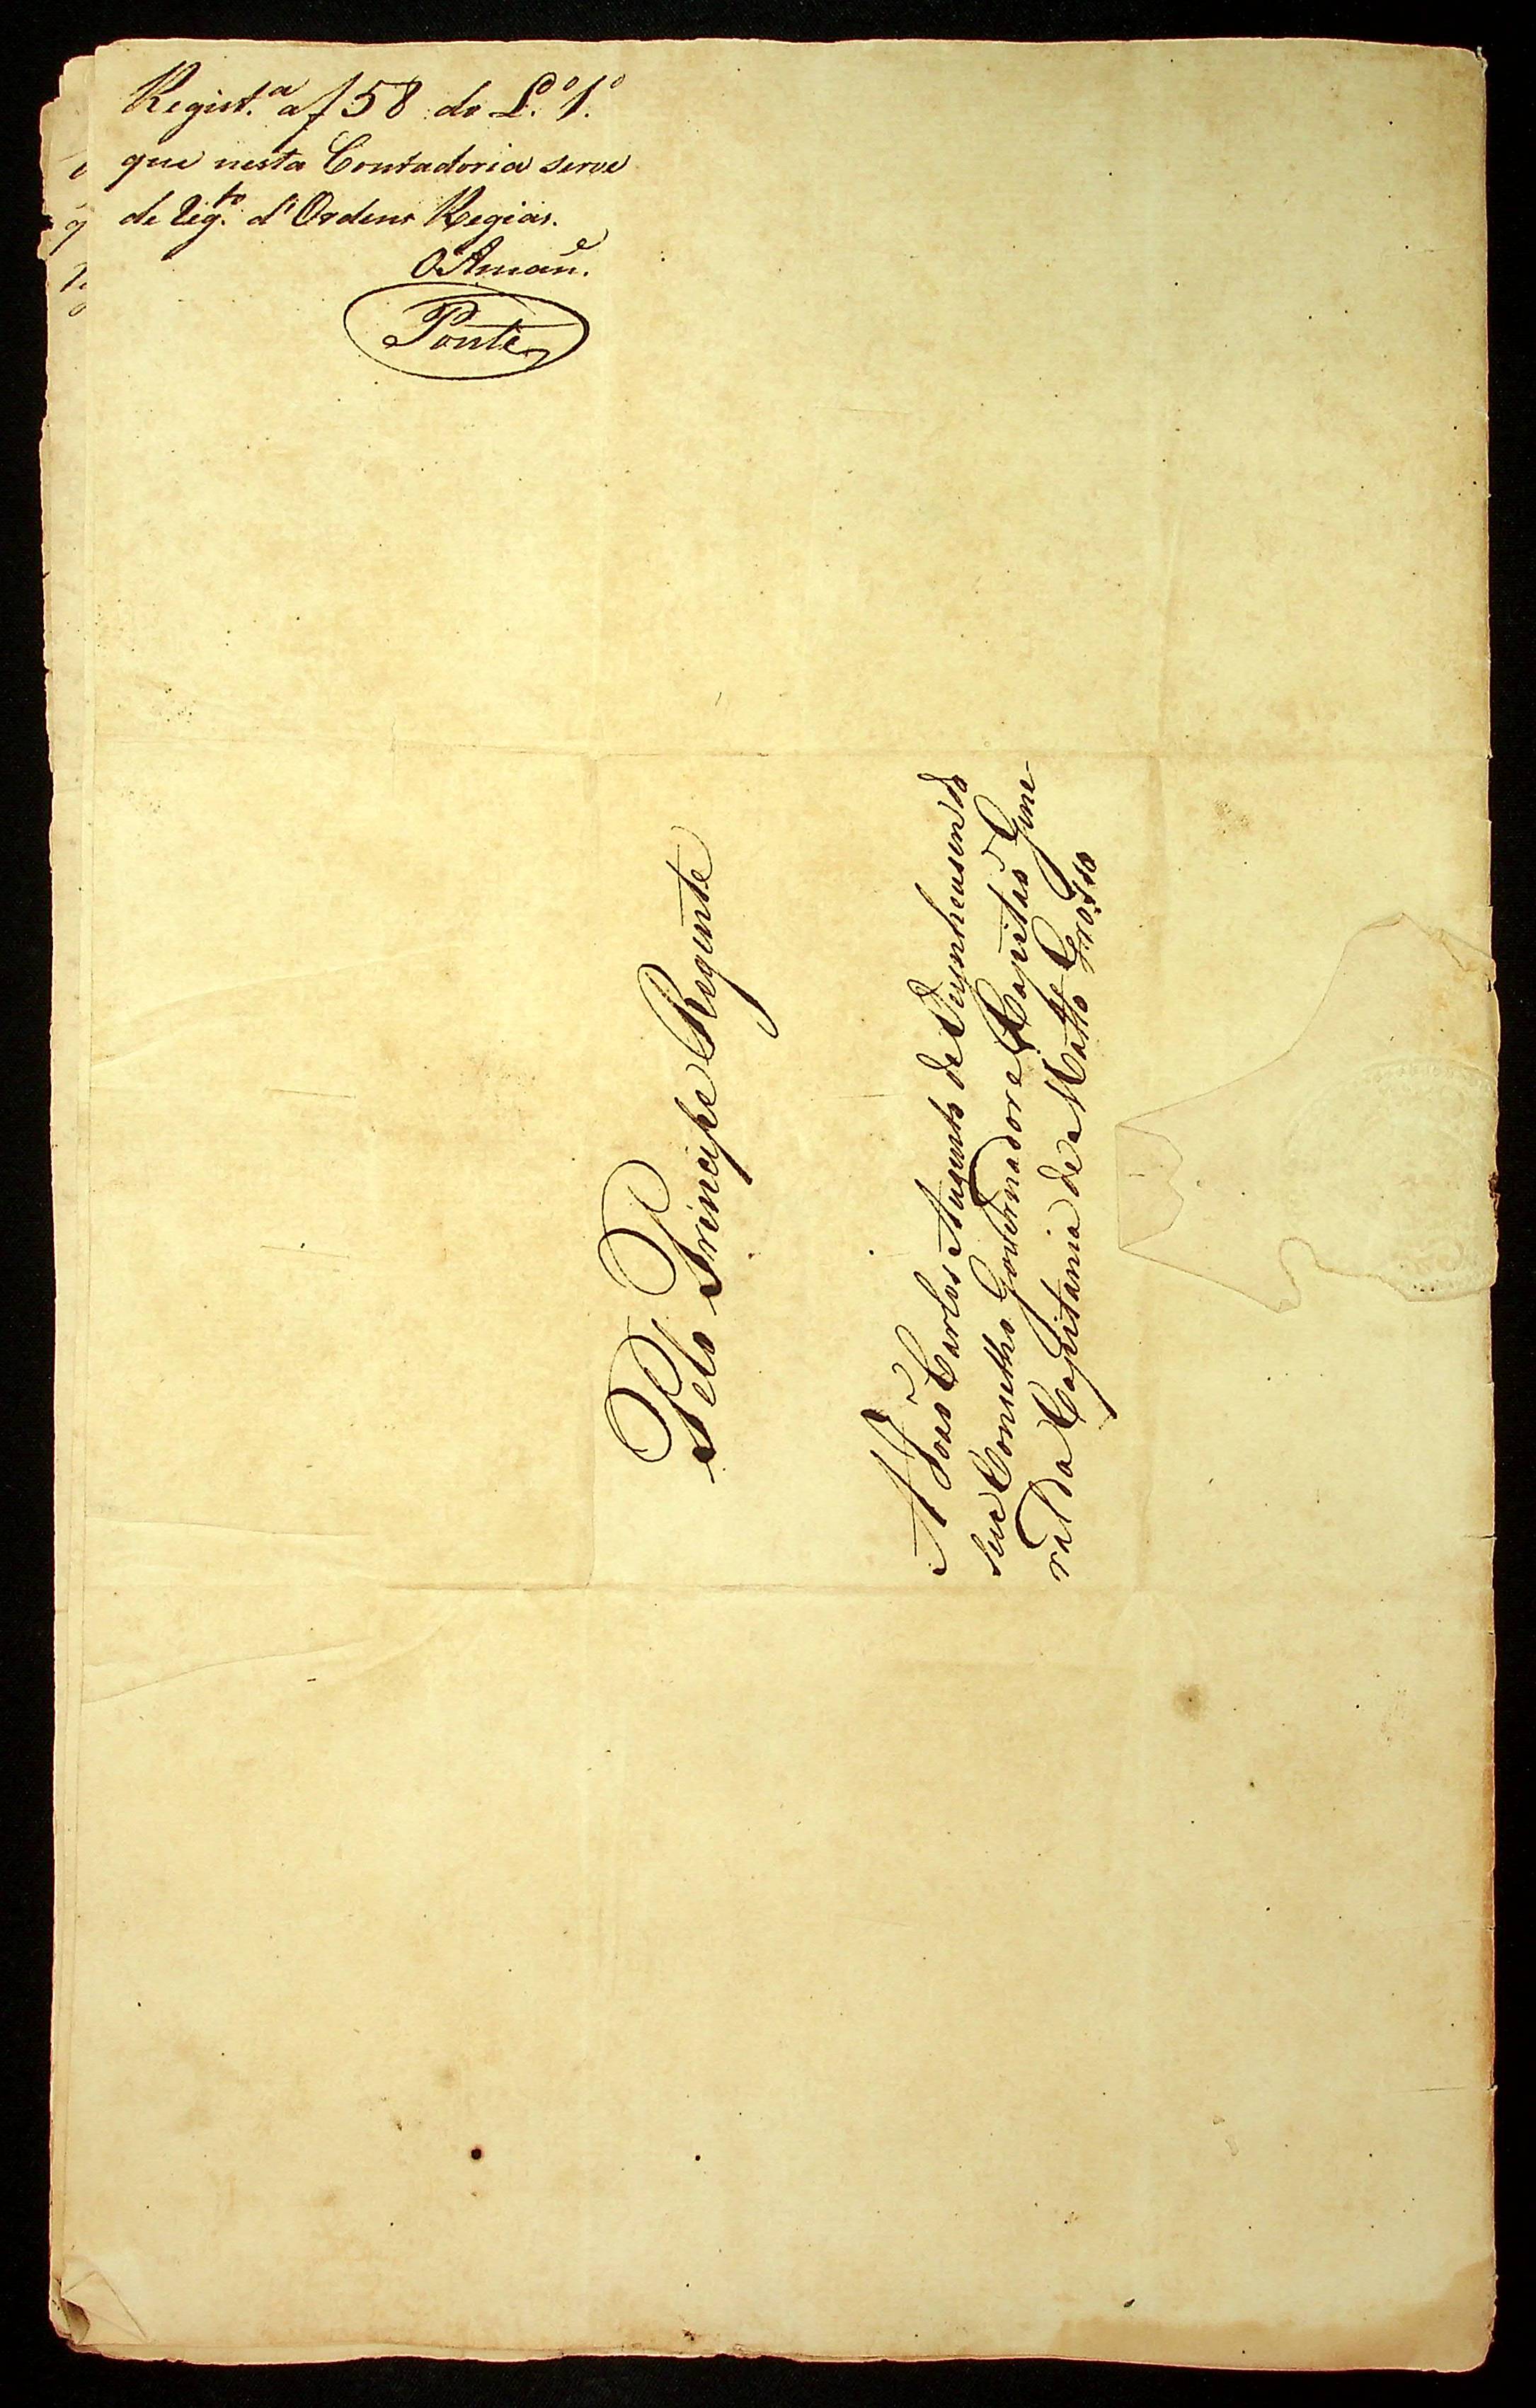 Regist.ª a f 58 do L.º 1.º
que nesta Contadoria serve
de Reg.to d'Ordens Regias.
O Aman.e
Ponte
Pelo Principe Regente
A João Carlos Augusto de Oeynhausen do
seu Conselho Governador e Capitão Gene-
ral da Capitania de Matto Grosso